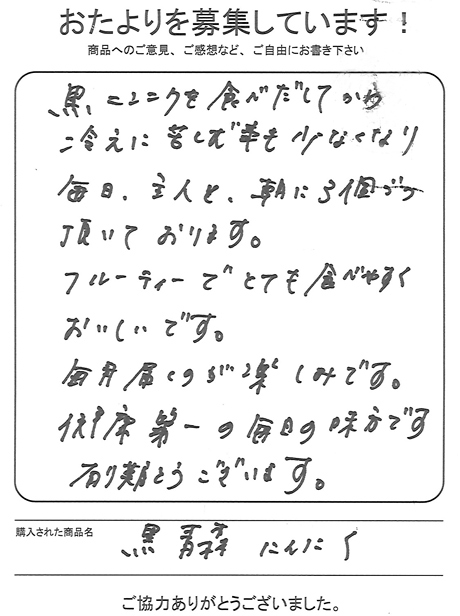 おたよりを募集しています！
商品へのご意見、ご感想など、ご自由にお書き下さい
黒ニンニクを食べだしてから
冷えに苦しむ事も少なくなり
毎日、主人と、朝に3個づつ
頂いております。
フルーティーでとても食べやすく
おいしいです。
毎月届くのが楽しみです。
健康第一の毎日の味方です
有り難とうございます。
購入された商品名
黒青森にんにく
ご協力ありがとうございました。